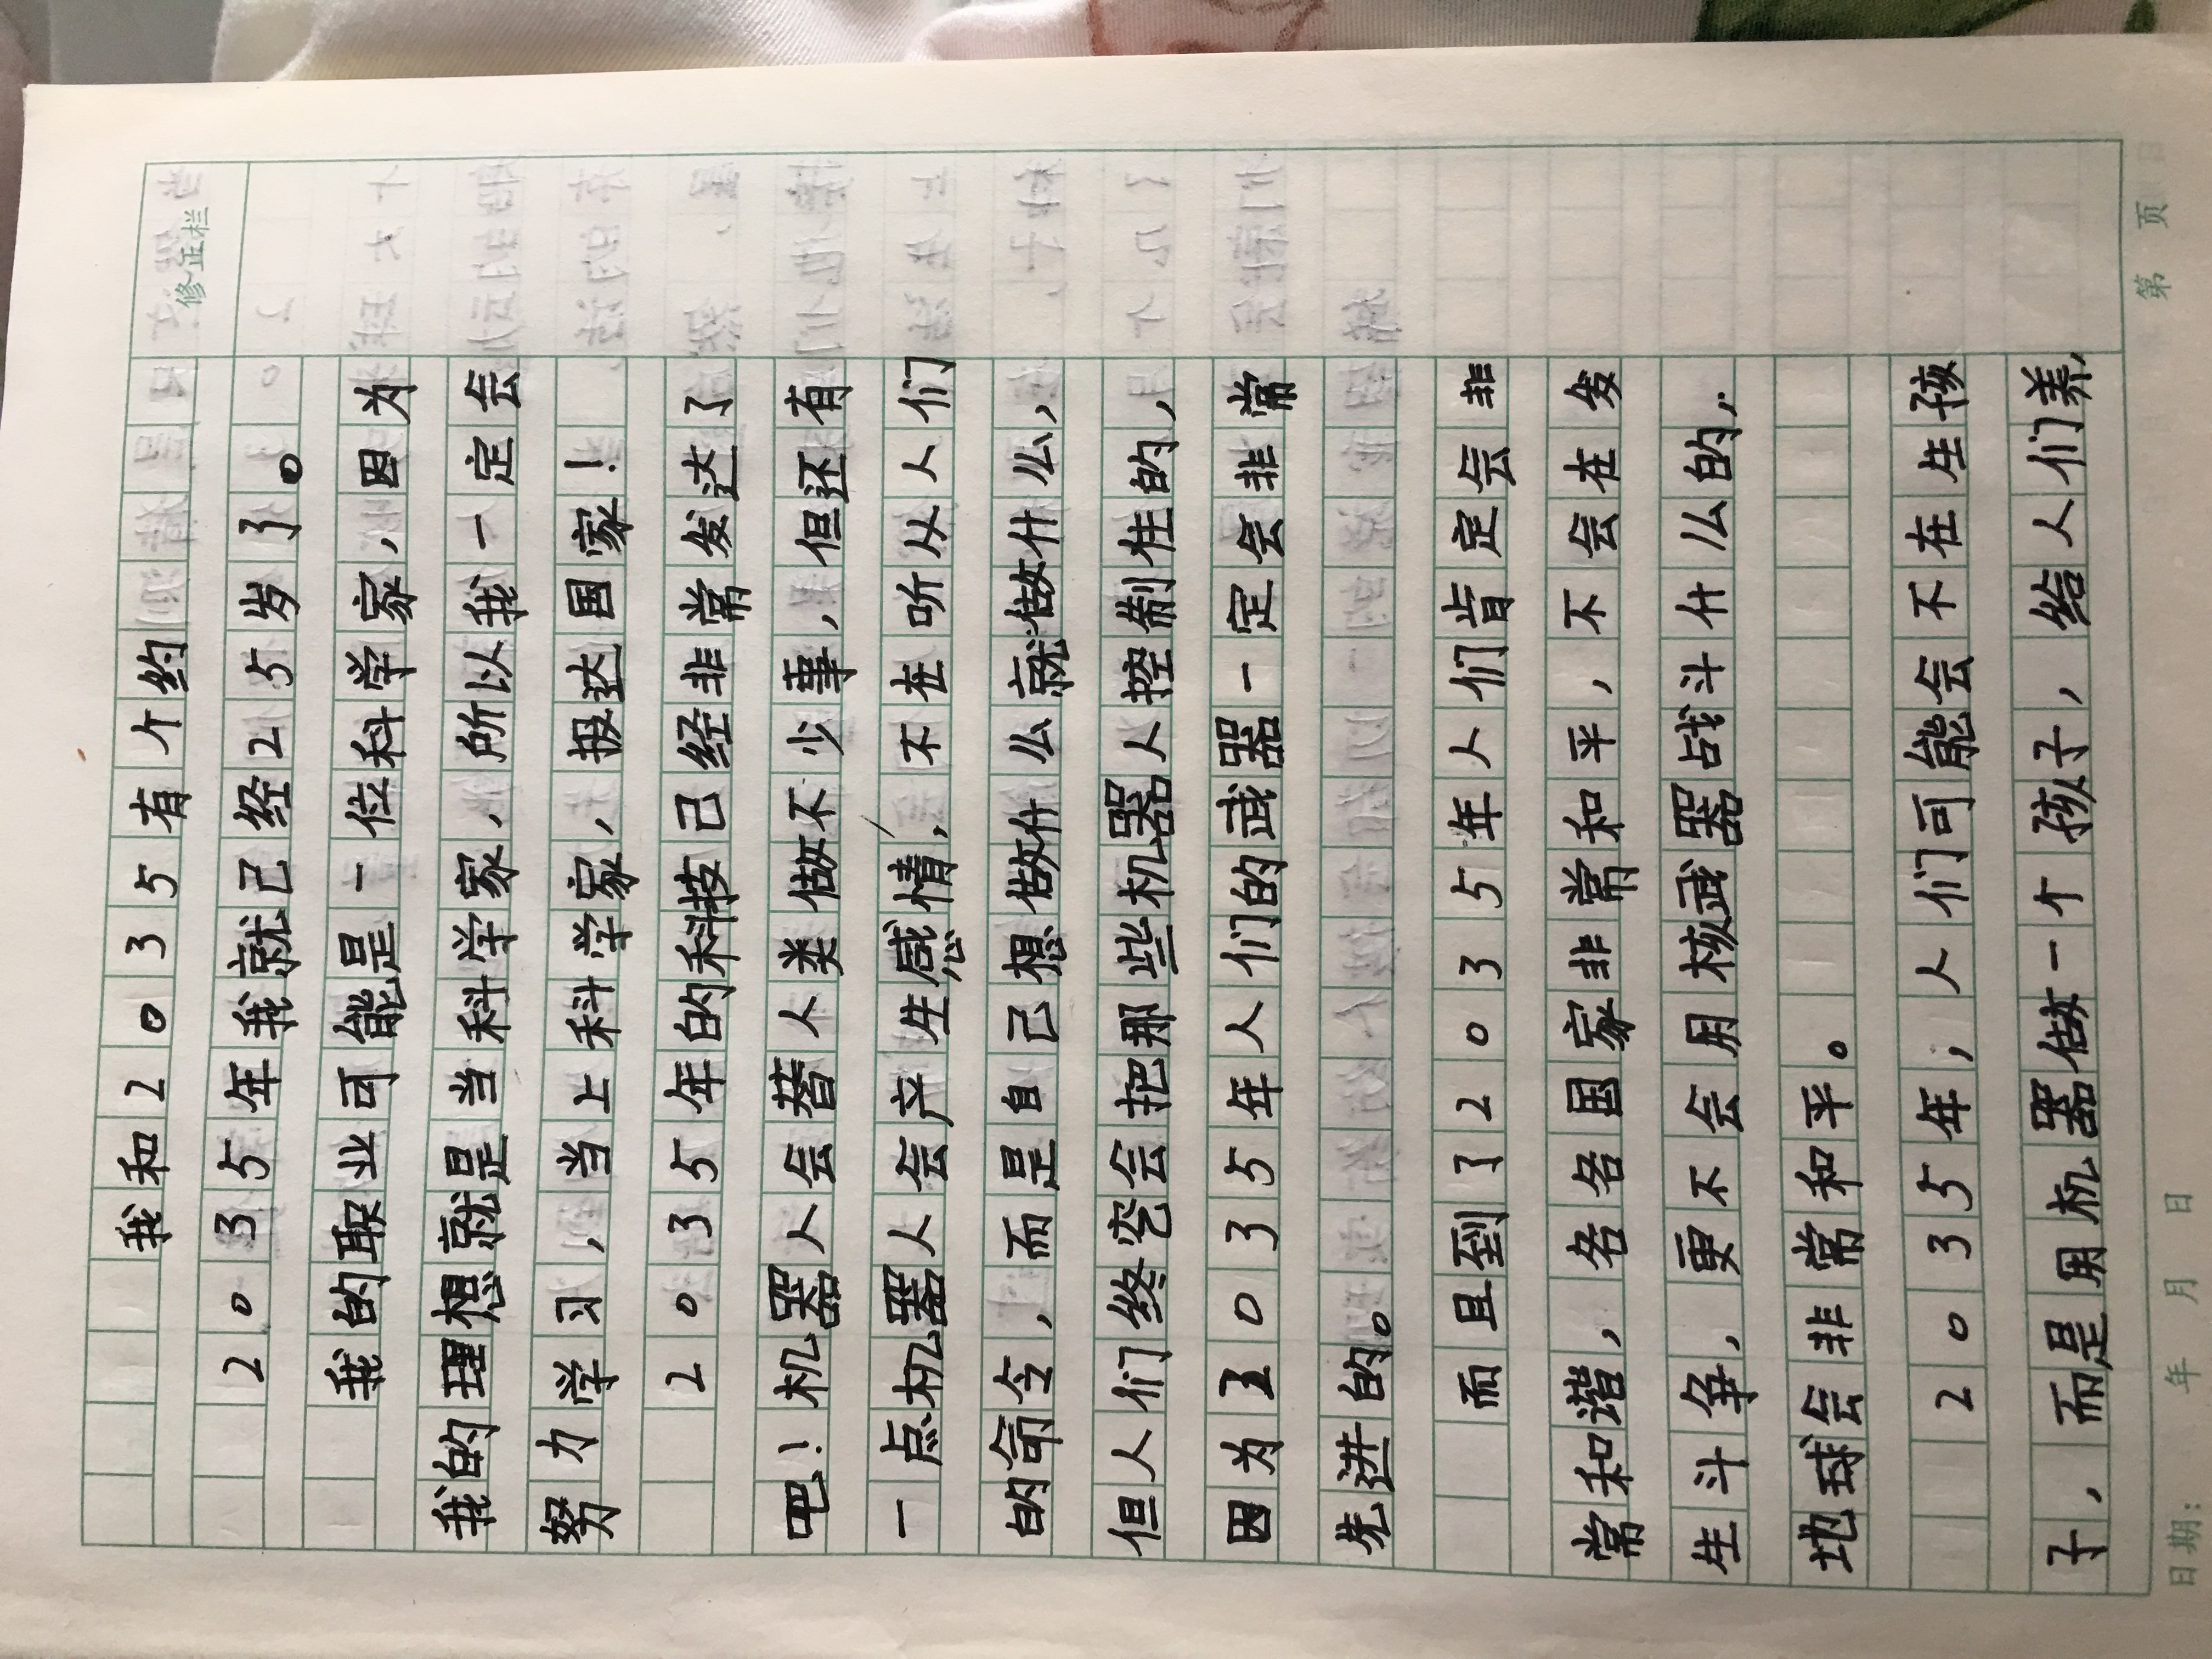 修正栏
我和2035有个约
2035年我就己经25岁了。
我的职业可能是一位科学家,因为
我的理想就是当科学家,所以我一定会
努力学习,当上科学家,报达国家!
2035年的科技己经非常发达了
吧!机器人会替人类做不少事,但还有
一点机器人会产生感情,不在听从人们
的命令,而是自己想做什么就做什么,
但人们终究会把那些机器人控制住的,
因为2035年人们的武器一定会非常
先进的。
而且到了2035年人们肯定会非
常和谐,各各国家非常和平,不会在发
生斗争,更不会用核武器战斗什么的,
地球会非常和平。
2035年,人们可能会不在生孩
子,而是用机器做一个孩子,给人们养,
日期: 年 月 日 第 页